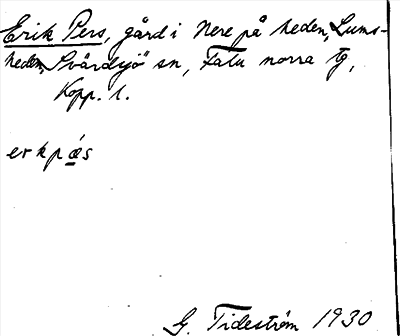 Erik Pers, gård i Nere på heden, Lums-
heden, Svärdsjö sn, Falu norra tg,
Kopp. l.
erkpæ̀s
G. Tideström 1930